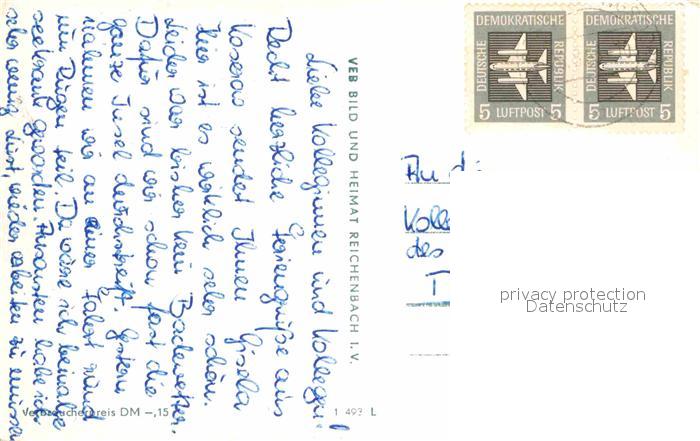 Liebe Kolleginnen und Kollegen!
Recht herzliche Feriengrüße aus
sendet Ihnen Gisela
hier ist es wirklich sehr schön.
Leider war bisher kein Badewetter.
Dafür sind wir schon fast die
ganze Insel durchstreift. Gestern
nahmen wir an einer Fahrt rund
um Rügen teil. Da wäre ich beinahe
seekrank geworden. Ansonsten habe ich
sehr wenig Lust, wieder arbeiten zu müssen
VEB BILD UND HEIMAT REICHENBACH I. V.
Verbraucherpreis DM –,15
1 493 L
DEMOKRATISCHE
DEUTSCHE
REPUBLIK
5 LUFTPOST 5
DEMOKRATISCHE
DEUTSCHE
REPUBLIK
5 LUFTPOST 5
An
Kolle
des
T
privacy protection
Datenschutz